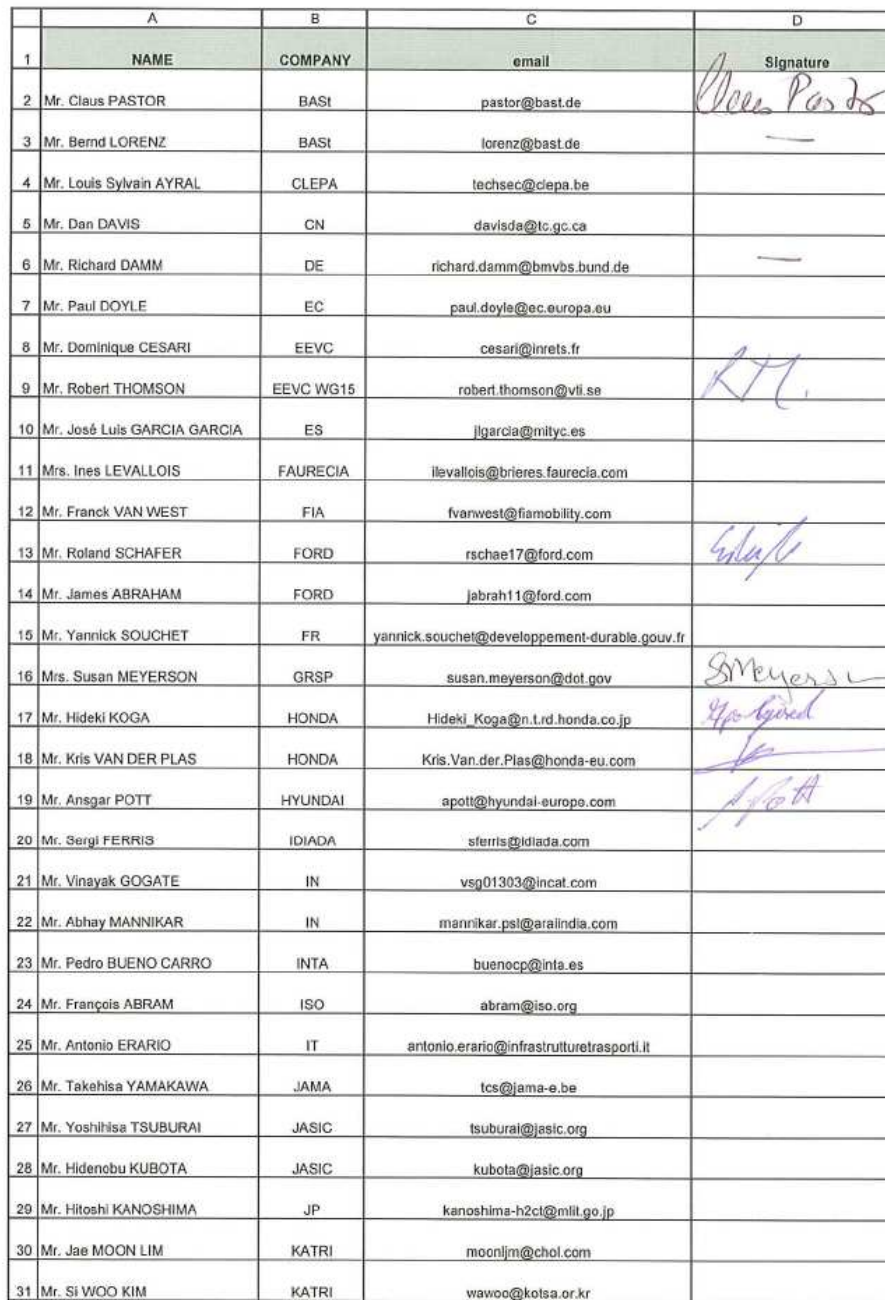 A B C D
1 NAME COMPANY email Signature
2 Mr. Claus PASTOR BASt pastor@bast.de Claus Pastor
3 Mr. Bernd LORENZ BASt lorenz@bast.de —
4 Mr. Louis Sylvain AYRAL CLEPA techsec@clepa.be
5 Mr. Dan DAVIS CN davisda@tc.gc.ca
6 Mr. Richard DAMM DE richard.damm@bmvbs.bund.de —
7 Mr. Paul DOYLE EC paul.doyle@ec.europa.eu
8 Mr. Dominique CESARI EEVC cesari@inrets.fr
9 Mr. Robert THOMSON EEVC WG15 robert.thomson@vti.se
10 Mr. José Luis GARCIA GARCIA ES jlgarcia@mityc.es
11 Mrs. Ines LEVALLOIS FAURECIA ilevallois@brieres.faurecia.com
12 Mr. Franck VAN WEST FIA fvanwest@fiamobility.com
13 Mr. Roland SCHAFER FORD rschae17@ford.com
14 Mr. James ABRAHAM FORD jabrah11@ford.com
15 Mr. Yannick SOUCHET FR yannick.souchet@developpement-durable.gouv.fr
16 Mrs. Susan MEYERSON GRSP susan.meyerson@dot.gov SMeyerson
17 Mr. Hideki KOGA HONDA Hideki_Koga@n.t.rd.honda.co.jp
18 Mr. Kris VAN DER PLAS HONDA Kris.Van.der.Plas@honda-eu.com
19 Mr. Ansgar POTT HYUNDAI apott@hyundai-europe.com A Pott
20 Mr. Sergi FERRIS IDIADA sferris@idiada.com
21 Mr. Vinayak GOGATE IN vsg01303@incat.com
22 Mr. Abhay MANNIKAR IN mannikar.psl@araiindia.com
23 Mr. Pedro BUENO CARRO INTA buenocp@inta.es
24 Mr. François ABRAM ISO abram@iso.org
25 Mr. Antonio ERARIO IT antonio.erario@infrastrutturetrasporti.it
26 Mr. Takehisa YAMAKAWA JAMA tcs@jama-e.be
27 Mr. Yoshihisa TSUBURAI JASIC tsuburai@jasic.org
28 Mr. Hidenobu KUBOTA JASIC kubota@jasic.org
29 Mr. Hitoshi KANOSHIMA JP kanoshima-h2ct@mlit.go.jp
30 Mr. Jae MOON LIM KATRI moonljm@chol.com
31 Mr. Si WOO KIM KATRI wawoo@kotsa.or.kr